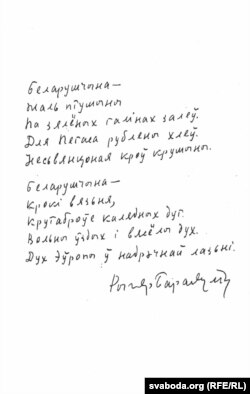 Беларушчына—
Жаль птушыны
На зялёных галінах залеў.
Для Пегаса рублены хлеў.
Несьвянцоная кроў крушыны.
Беларушчына—
Крокі вязьня,
Крутаброўе калядных дуг.
Вольны ўздых і вясёлы дух.
Дух Эўропы ў набрэчнай лазьні.
Рыгор Барадулін
svaboda.org (RFE/RL)